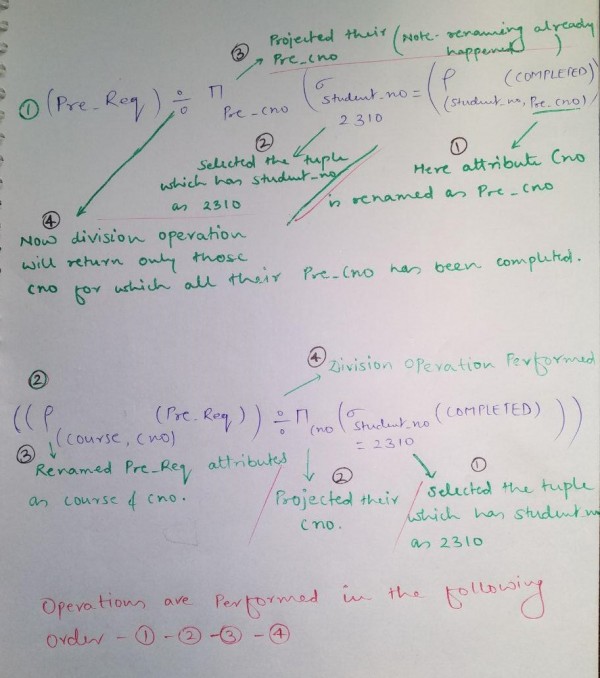 ③ Projected their (Note- renaming already
Pre_cno happened)
① (Pre_Req) ÷ Π Pre_cno (σ student_no = 2310 (ρ (student_no, Pre_cno) (COMPLETED)
② Selected the tuple
which has student_no
as 2310
① Here attribute Cno
is renamed as Pre_cno
④
Now division operation
will return only those
cno for which all their Pre_Cno has been completed.
④ Division Operation Performed
②
((ρ (course, cno) (Pre_Req)) ÷ Π cno (σ student_no = 2310 (COMPLETED)))
③ Renamed Pre_Req attributes
as course & cno.
② Projected their
cno.
① Selected the tuple
which has student_no
as 2310
Operations are Performed in the following
order - ① - ② - ③ - ④